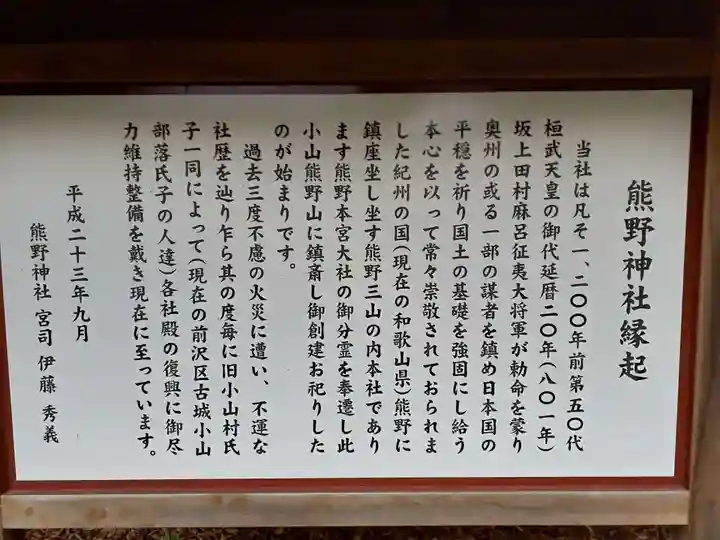 熊野神社縁起
当社は凡そ一、二〇〇年前第五〇代
桓武天皇の御代延暦二〇年(八〇一年)
坂上田村麻呂征夷大将軍が勅命を蒙り
奥州の或る一部の謀者を鎮め日本国の
平穏を祈り国土の基礎を強固にし給う
本心を以って常々崇敬されておられま
した紀州の国(現在の和歌山県)熊野に
鎮座坐し坐す熊野三山の内本社であり
ます熊野本宮大社の御分霊を奉遷し此
小山熊野山に鎮斎し御創建お祀りした
のが始まりです。
過去三度不慮の火災に遭い、不運な
社歴を辿り乍ら其の度毎に旧小山村氏
子一同によって(現在の前沢区古城小山
部落氏子の人達)各社殿の復興に御尽
力維持整備を戴き現在に至っています。
平成二十三年九月
熊野神社 宮司 伊藤 秀義